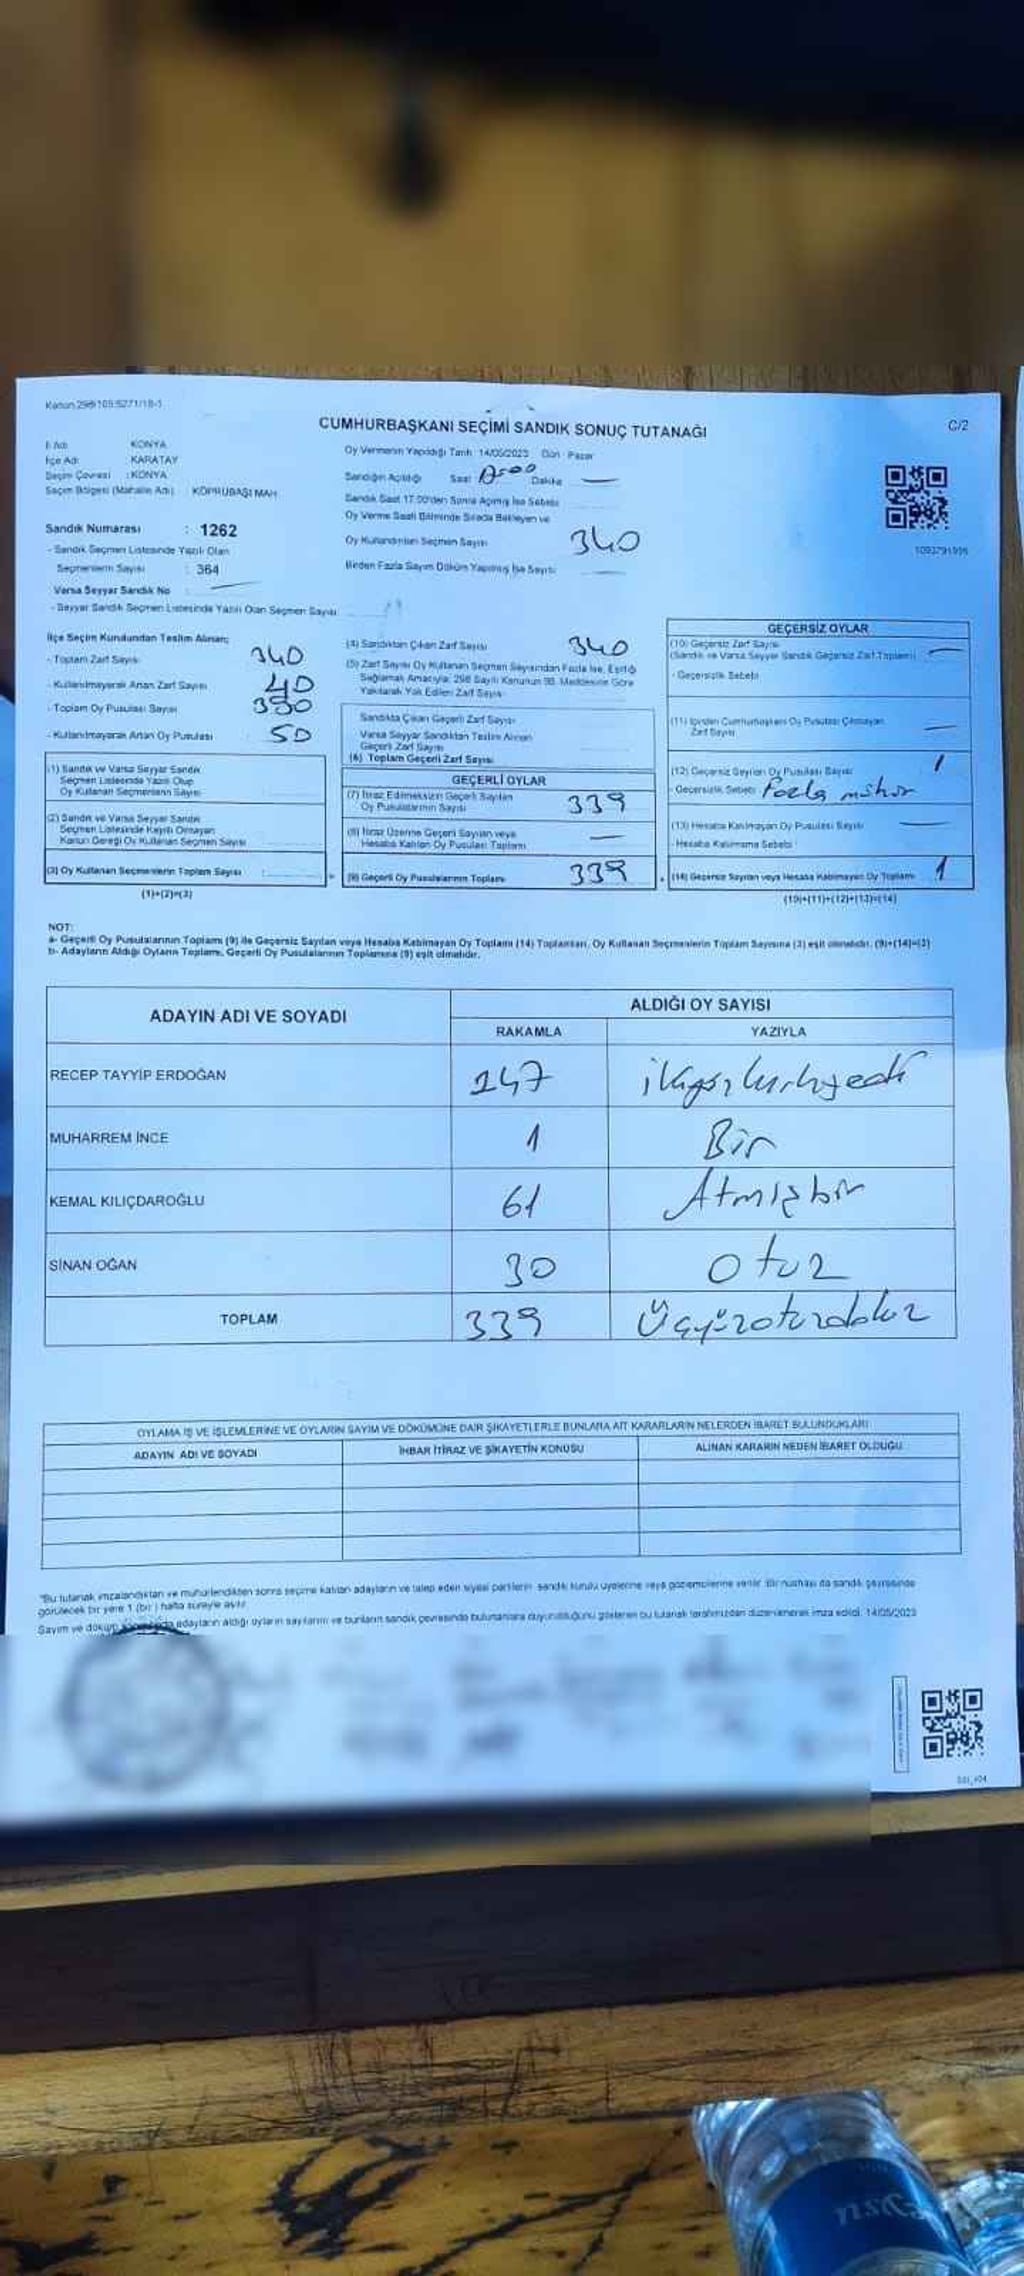 Kanun 298/105 5271/18-1
CUMHURBAŞKANI SEÇİMİ SANDIK SONUÇ TUTANAĞI
C/2
İl Adı : KONYA
İlçe Adı : KARATAY
Seçim Çevresi : KONYA
Seçim Bölgesi (Mahalle Adı) : KÖPRÜBAŞI MAH.
Sandık Numarası : 1262
- Sandık Seçmen Listesinde Yazılı Olan
Seçmenlerin Sayısı : 364
Varsa Seyyar Sandık No
- Seyyar Sandık Seçmen Listesinde Yazılı Olan Seçmen Sayısı
Oy Vermenin Yapıldığı Tarih : 14/05/2023 Gün : Pazar
Sandığın Açıldığı Saat Dakika —
Sandık Saat 17.00'den Sonra Açılmış İse Sebebi
Oy Verme Saati Bitiminde Sırada Bekleyen ve
Oy Kullandırılan Seçmen Sayısı 340
Birden Fazla Sayım Döküm Yapılmış İse Sayısı
1093791996
İlçe Seçim Kurulundan Teslim Alınan;
- Toplam Zarf Sayısı 340
- Kullanılmayarak Artan Zarf Sayısı 40
- Toplam Oy Pusulası Sayısı
- Kullanılmayarak Artan Oy Pusulası 50
(1) Sandık ve Varsa Seyyar Sandık
Seçmen Listesinde Yazılı Olup
Oy Kullanan Seçmenlerin Sayısı
(2) Sandık ve Varsa Seyyar Sandık
Seçmen Listelerinde Kayıtlı Olmayan
Kanun Gereği Oy Kullanan Seçmen Sayısı
(3) Oy Kullanan Seçmenlerin Toplam Sayısı
(1)+(2)=(3)
(4) Sandıktan Çıkan Zarf Sayısı 340
(5) Zarf Sayısı Oy Kullanan Seçmen Sayısından Fazla İse, Eşitliği
Sağlamak Amacıyla, 298 Sayılı Kanunun 98. Maddesine Göre
Yakılarak Yok Edilen Zarf Sayısı
Sandıkta Çıkan Geçerli Zarf Sayısı
Varsa Seyyar Sandıktan Teslim Alınan
Geçerli Zarf Sayısı
(6) Toplam Geçerli Zarf Sayısı
GEÇERLİ OYLAR
(7) İtiraz Edilmeksizin Geçerli Sayılan
Oy Pusulalarının Sayısı 339
(8) İtiraz Üzerine Geçerli Sayılan veya
Hesaba Katılan Oy Pusulası Toplamı —
(9) Geçerli Oy Pusulalarının Toplamı 339
GEÇERSİZ OYLAR
(10) Geçersiz Zarf Sayısı
(Sandık ve Varsa Seyyar Sandık Geçersiz Zarf Toplamı) —
- Geçersizlik Sebebi
(11) İçinden Cumhurbaşkanı Oy Pusulası Çıkmayan
Zarf Sayısı —
(12) Geçersiz Sayılan Oy Pusulası Sayısı 1
- Geçersizlik Sebebi Fazla mühür
(13) Hesaba Katılmayan Oy Pusulası Sayısı —
- Hesaba Katılmama Sebebi
(14) Geçersiz Sayılan veya Hesaba Katılmayan Oy Toplamı 1
(10)+(11)+(12)+(13)=(14)
NOT:
a- Geçerli Oy Pusulalarının Toplamı (9) ile Geçersiz Sayılan veya Hesaba Katılmayan Oy Toplamı (14) Toplamları, Oy Kullanan Seçmenlerin Toplam Sayısına (3) eşit olmalıdır. (9)+(14)=(3)
b- Adayların Aldığı Oyların Toplamı, Geçerli Oy Pusulalarının Toplamına (9) eşit olmalıdır.
ADAYIN ADI VE SOYADI
ALDIĞI OY SAYISI
RAKAMLA YAZIYLA
RECEP TAYYİP ERDOĞAN 247
MUHARREM İNCE 1 Bir
KEMAL KILIÇDAROĞLU 61 Atmışbir
SİNAN OĞAN 30 otuz
TOPLAM 339 Üçyüzotuzdokuz
OYLAMA İŞ VE İŞLEMLERİNE VE OYLARIN SAYIM VE DÖKÜMÜNE DAİR ŞİKAYETLERLE BUNLARA AİT KARARLARIN NELERDEN İBARET BULUNDUKLARI
ADAYIN ADI VE SOYADI İHBAR İTİRAZ VE ŞİKAYETİN KONUSU ALINAN KARARIN NEDEN İBARET OLDUĞU
"Bu tutanak imzalandıktan ve mühürlendikten sonra seçime katılan adayların ve talep eden siyasi partilerin sandık kurulu üyelerine veya gözlemcilerine verilir. Bir nüshası da sandık çevresinde
görülecek bir yere 1 (bir ) hafta süreyle asılır.
Sayım ve döküm adayların aldığı oyların sayılarını ve bunların sandık çevresinde bulunanlara duyurulduğunu gösteren bu tutanak tarafımızdan düzenlenerek imza edildi. 14/05/2023